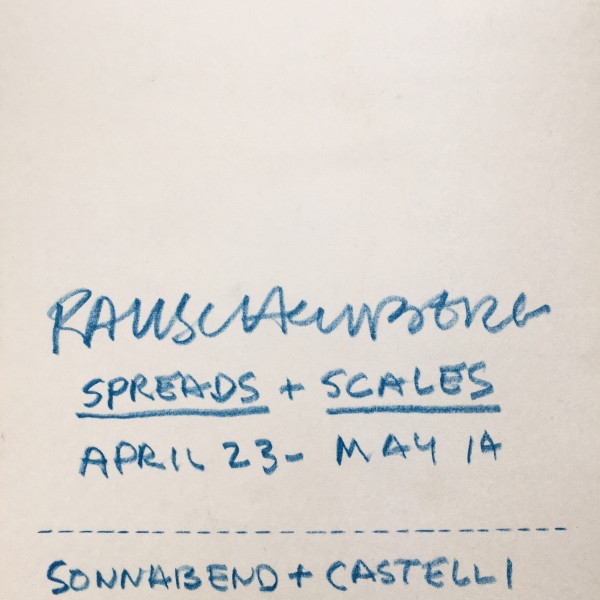 RAUSCHENBERG
SPREADS + SCALES
APRIL 23 - MAY 14
SONNABEND + CASTELLI